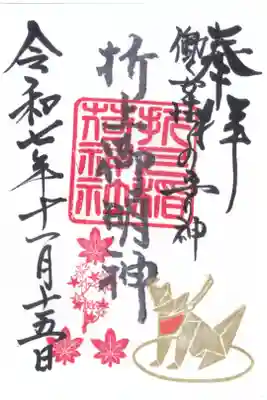 奉拝
の守り神
折上御明神
折上稲
荷神社
令和七年十一月十五日